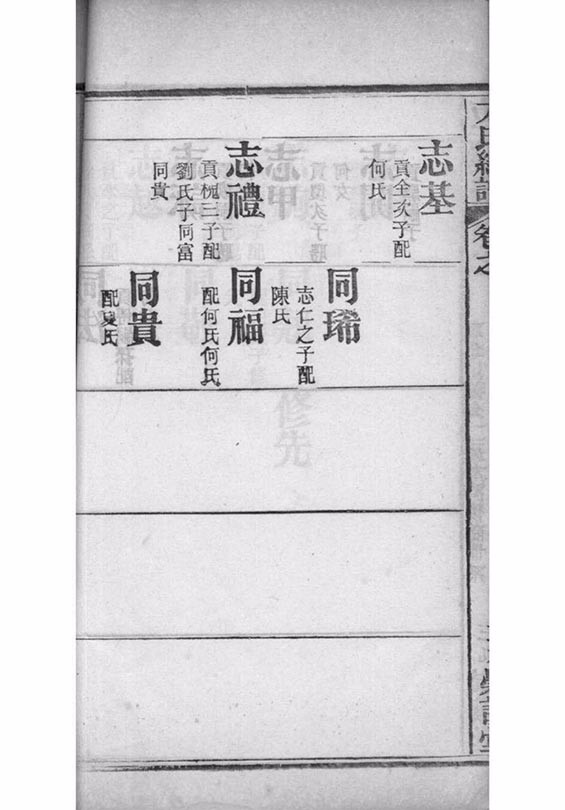 卷之
志基
貢全次子配
何氏
志禮
貢槐三子配
劉氏子同富
同貴
同琋
志仁之子配
陳氏
同福
配何氏何氏
同貴
配夏氏